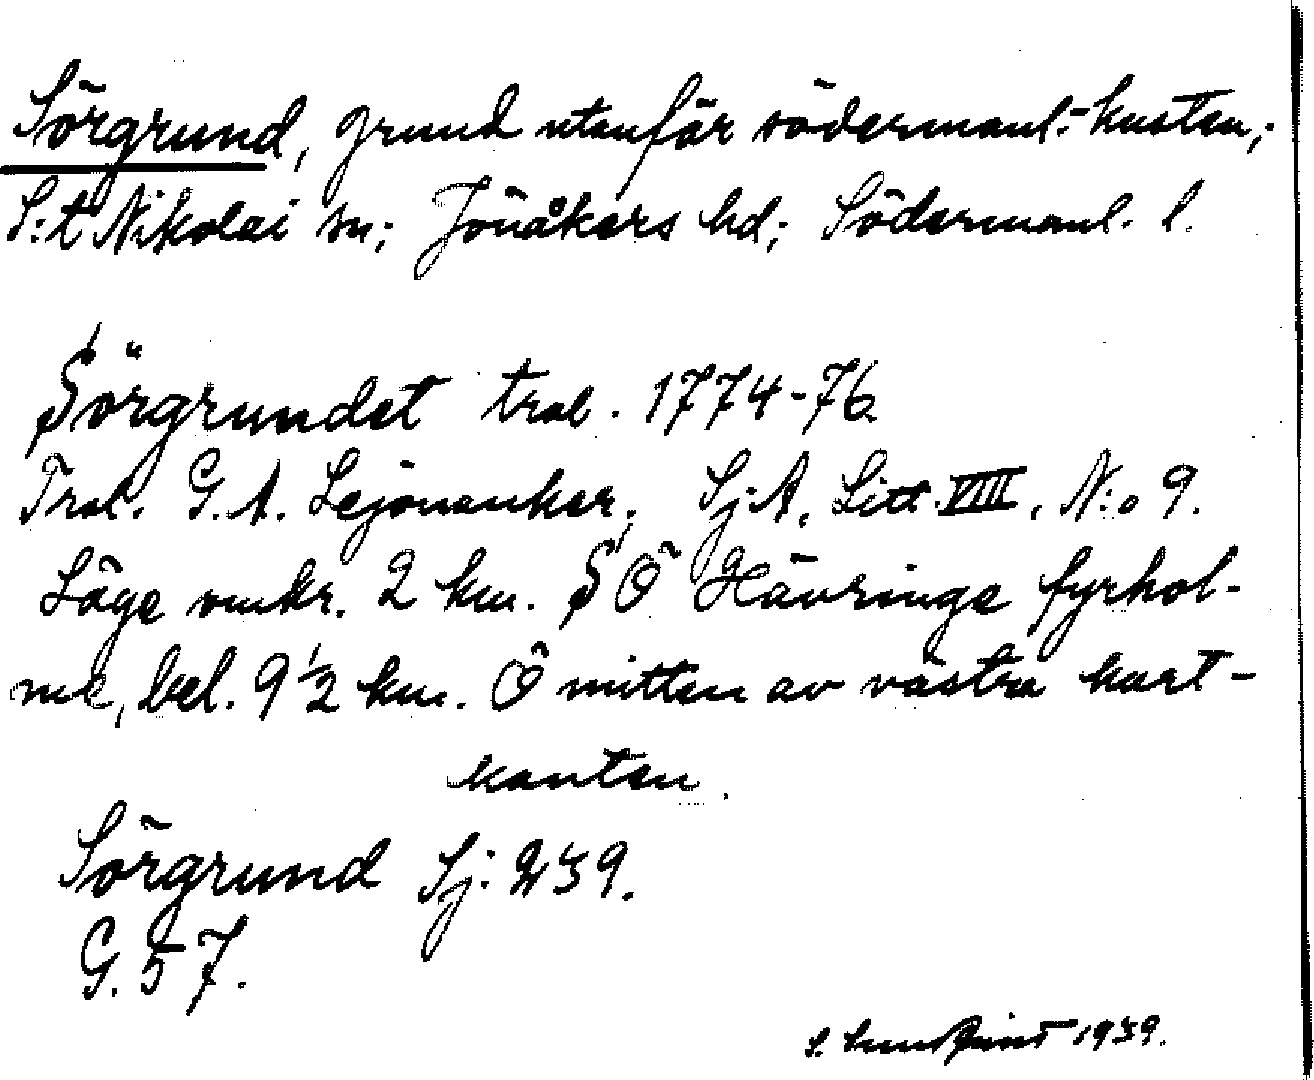 Sörgrund, grund utanför södermanl.-kusten,;
S:t Nikolai sn; Jönåkers hd; Södermanl. l.
Sörgrundet trol. 1774-76
Trol. G. A. Lejonanker, Sj.A, Litt. VIII, N:o 9.
Läge omkr. 2 km. SÖ Hävringe fyrhol-
me, bel. 9 1/2 km. Ö mitten av västra kart-
kanten.
Sörgrund Sj: 239.
G. 57.
S. Lundqvist 1939.